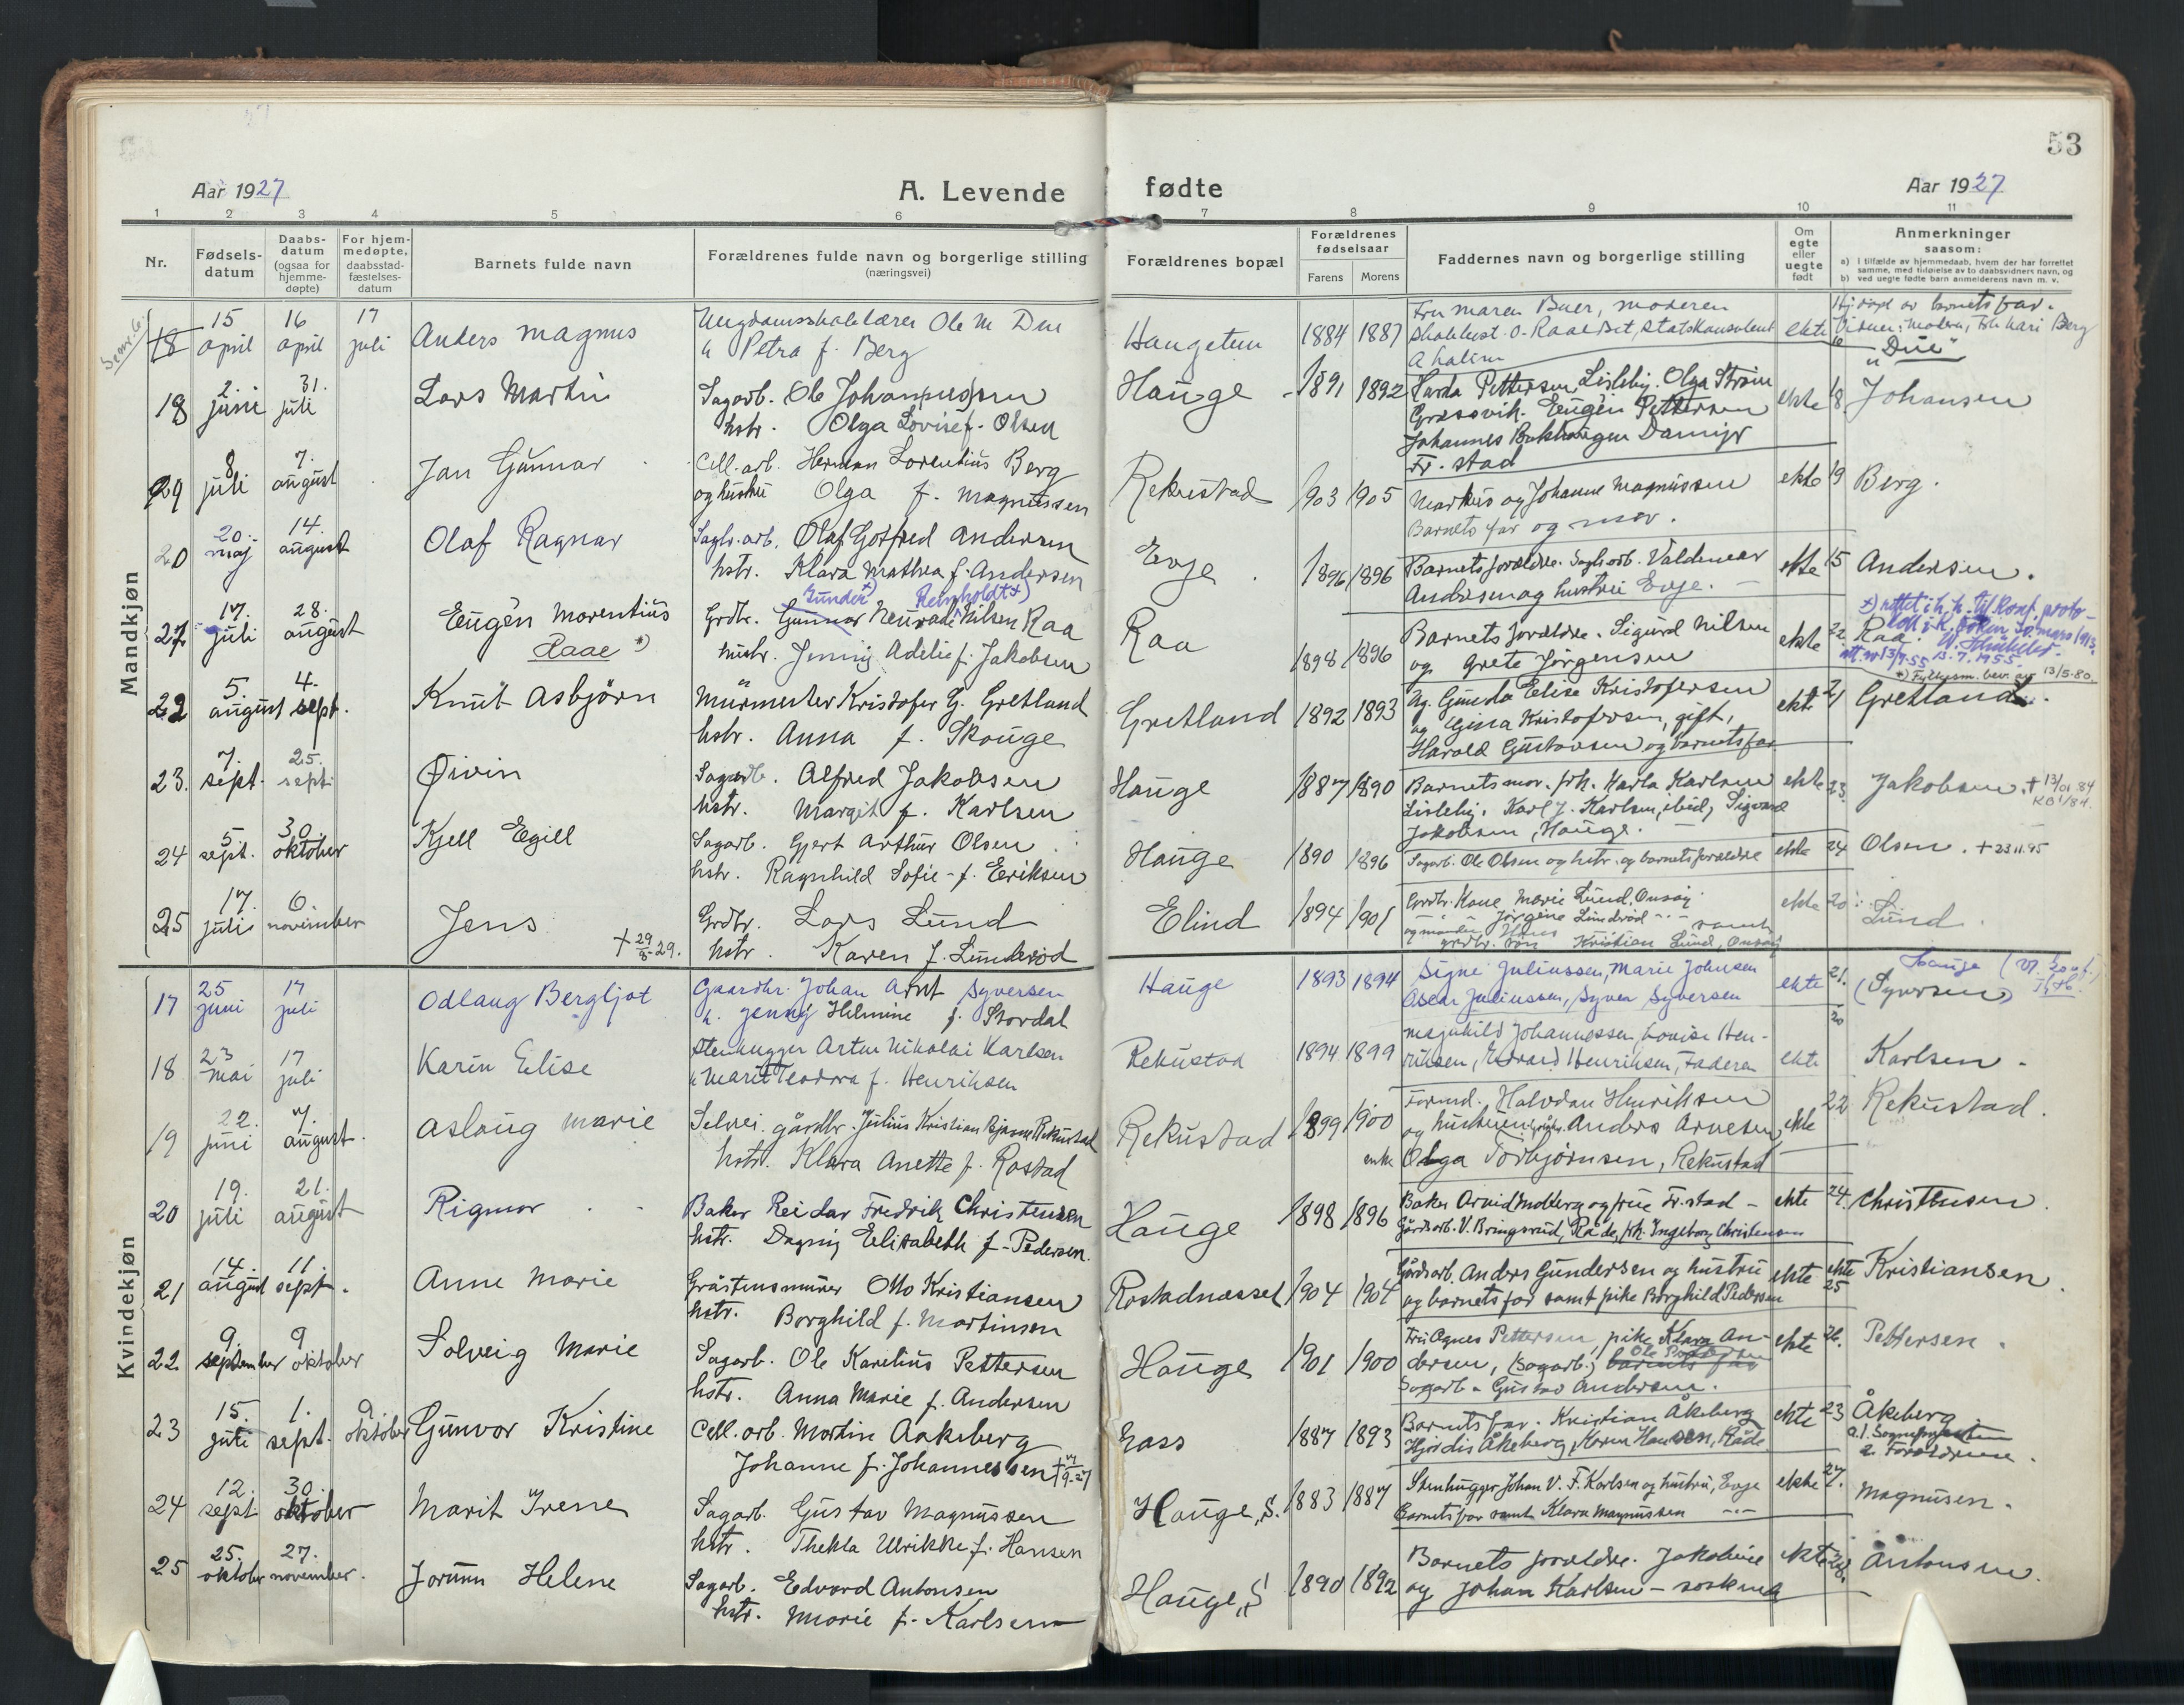 53
Aar 1927
A. Levende fødte
Aar 1927
1 2 3 4 5 6 7 8 9 10 11
Nr.
Fødsels-
datum
Daabs-
datum
(ogsaa for
hjemme-
døpte)
For hjem-
medøpte,
daabsstad-
fæstelses-
datum
Barnets fulde navn
Forældrenes fulde navn og borgerlige stilling
(næringsvei)
Forældrenes bopæl
Forældrenes
fødselsaar
Farens Morens
Faddernes navn og borgerlige stilling
Om
egte
eller
uegte
født
Anmerkninger
saasom:
a) I tilfælde av hjemmedaab, hvem der har forrettet
samme, med tilføielse av to daabsvidners navn, og
b) ved uegte fødte barn anmelderens navn m. v.
Mandkjøn
18 15 april 16 april 17 juli Anders Magnus
Ungdomsskolelærer Ole M Due
h Petra f. Berg
Haugetun 1884 1887
Fru Maren Buer, moderen
A Kalim
ekte
Hj døpt av barnets far.
Vidner: Moderen, Kari Berg
"Due"
18 2. juni 31. juli Lars Martin
Sagarb. Ole Johan(nes)sen
hstr. Olga Lovise f. Olsen
Hauge 1891 1892
Harda Pettersen Lisleby. Olga Strøm
Gressvik. Eugen Pettersen
Johannes
Fr. stad
ekte 18 Johansen
19 8 juli 7. august Jan Gunnar
Cell. arb. Herman Lorentius Berg
og hustru Olga f. Magnussen
Rekustad 1903 1905
Markus og Johanne Magnussen
Barnets far og mor.
ekte 19 Berg.
20 20. maj 14. august Olaf Ragnar
Sagbr. arb. Olaf Gotfred Andersen
hstr. Klara Mathea f. Andersen
Evje 1896 1896
Barnets forældre. Sagbr. arb. Valdemar
Andersen og hustru Evje.
ekte 15 Andersen.
27 17. juli 28. august Eugèn Morentius
Raae *)
Gunder Reinholdt x)
Grdbr. Gunnar Nilsen Raa
hustr. Jenny Adelie f. Jakobsen
Raa 1898 1896
Barnets forældre. Sigurd Nilsen
og Grete Jørgensen
ekte 22. Raa.
13.7.1955.
13/5-80.
22 5. august 4. sept. Knut Asbjørn
Murmester Kristofer G. Gretland
hstr. Anna f. Skauge
Gretland 1892 1893
Ag. Gunda Elise Kristofersen
og Gina Kristofersen, gift,
Harald Gustavsen og barnets far
ekte 21 Gretland.
23. 7. sept. 25. sept. Øivin
Sagarb. Alfred Jakobsen
hstr. Margit f. Karlsen
Hauge 1887 1890
Barnets mor. frk. Karla Karlsen
Lisleby, Karl J. Karlsen, ibid, Sigvard
Jakobsen, Hauge.
ekte 23. Jakobsen. + 13/01 84
24 5. sept. 30. oktober Kjell Egill
Sagarb. Gjert Arthur Olsen
hstr. Ragnhild Sofie f. Eriksen
Hauge 1890 1896
Sagarb. Ole Olsen og hstr. og barnets forældre
ekte 24 Olsen. + 23.11.95
25 17. juli 6. november Jens
+ 29/8-29.
Grdbr. Lars Lund
hstr. Karen f. Lunderød
Elind 1894 1901
Grdbr. Kone Marie Lund, Onsøy
grdbr. søn Kristian Lund, Onsøy
ekte 20 Lund.
Kvindekjøn
17 25 juni 17 juli Odlaug Bergljot
Gaardbr. Johan Arnt Syversen
h. Jenny Helmine f. Stordal
Hauge 1893 1894
Signe Juliussen, Marie Johnsen
Oscar Juliussen, Syver Syversen
ekte 21. Hauge
(Syversen)
18 23 mai 17 juli Karin Elise
Stenhugger Artur Nikolai Karlsen
h Marit Teodora f. Henriksen
Rekustad 1894 1899
Magnhild Johannessen, Lovise Hen-
riksen, Edvard Henriksen, Faderen
ekte 20 Karlsen.
19 22. juni 7. august. Aslaug Marie
Selvei. gårdbr. Julius Kristian Bjarne Rekustad
hstr. Klara Anette f. Rostad
Rekustad 1899 1900
Formd. Halvdan Henriksen
og hustru Anders Arnesen,
enke Olga Torbjørnsen, Rekustad
ekte 22 Rekustad.
20 19. juli 21. august Rigmor
Baker Reidar Fredrik Christensen
hstr. Dagny Elisabeth f. Pedersen.
Hauge 1898 1896
Baker Arvid Moberg og frue Fr.stad
Gårdsarb. V. Bringsrud, Råde, frk. Ingeborg Christensen
ekte 24. Christensen.
21 14. august 11. sept. Anne Marie
Gråstensmurer Otto Kristiansen
hstr. Borghild f. Martinsen
Rostadnesset 1904 1904
Gårdsarb. Anders Gundersen og hustru
og barnets far samt pike Borghild Pedersen
ekte ekte 25 Kristiansen.
22 9. september 9 oktober Solveig Marie
Sagarb. Ole Karelius Pettersen
hstr. Anna Marie f. Andersen
Hauge 1901 1900
Fru Agnes Pettersen, pike Klara An-
dersen, (Sagarb.) barnets far
Sagarb. Gustav Andersen.
ekte 26. Pettersen.
23 15. juli 1. sept. 9. oktober Gunvor Kristine
Cell. arb. Martin Aakeberg
Johanne f. Johannessen
Eass 1887 1893
Barnets far. Kristian Åkeberg
Hjørdis Åkeberg, Karen Hansen, Råde
ekte 23 Åkeberg
a.1. Sogneprest
2. Forældrene.
24 12. sept. 30. oktober Marit Irene
Sagarb. Gustav Magnussen
hstr. Thekla Ulrikke f. Hansen
Hauge, S. 1883 1887
Stenhugger Johan V. F. Karlsen og hustru, Evje
Barnets far samt Klara Magnussen
ekte 27. Magnusen.
25 25. oktober 27. november. Jorunn Helene
Sagarb. Edvard Antonsen
hstr. Marie f. Karlsen
Hauge, S 1890 1892
Barnets forældre. Jakobine
og Johan Karlsen – søskend
ekte 28. Antonsen.